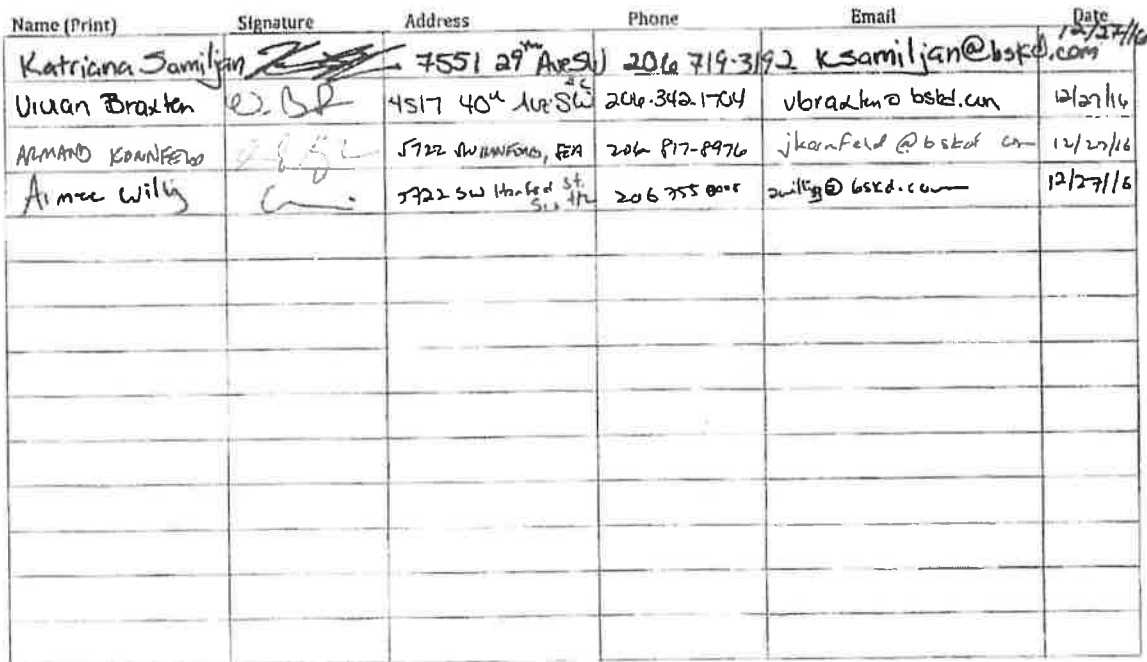 Name (Print) Signature Address Phone Email Date
Katriana Samiljan 7551 29th Ave SW 206 719-3192 ksamiljan@bskd.com 12/27/16
Vivian Braxten 4517 40th Ave SW 206.342.1704 vbraxten@bskd.com 12/27/16
ARMAND 5722 SW HANFORD, SEA 206 817-8976 jkornfeld@bskd com 12/27/16
Aimee Willig 5722 SW Hanford St. 206 755 awillig@bskd.com 12/27/16